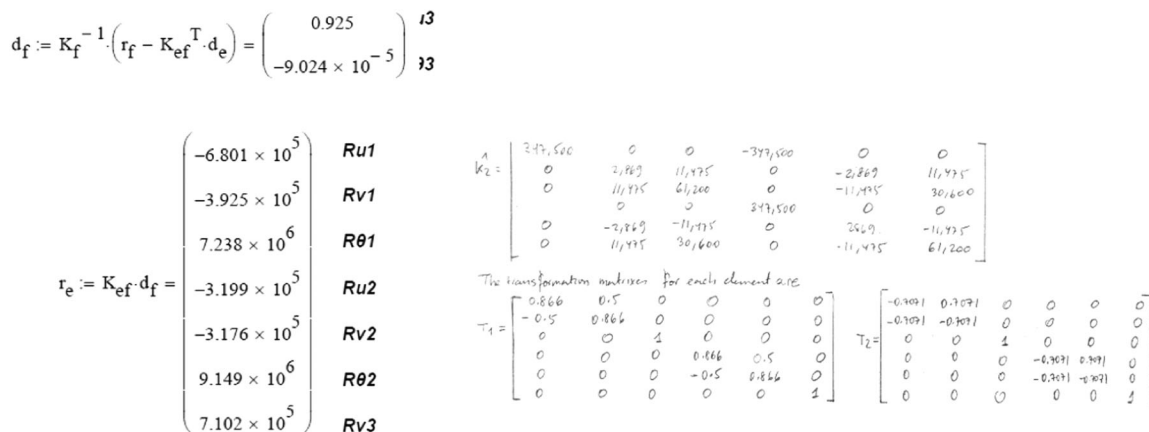 d_f := K_f^-1·(r_f − K_ef^T·d_e) = ( 0.925
−9.024 × 10^-5 )
r_e := K_ef·d_f =
−6.801 × 10^5 Ru1
−3.925 × 10^5 Rv1
7.238 × 10^6 Rθ1
−3.199 × 10^5 Ru2
−3.176 × 10^5 Rv2
9.149 × 10^6 Rθ2
7.102 × 10^5 Rv3
k̂2 =
347,500 0 0 -347,500 0 0
0 2,869 11,475 0 -2,869 11,475
0 11,475 61,200 0 -11,475 30,600
0 0 347,500 0 0
0 -2,869 -11,475 0 2869 -11,475
0 11,475 30,600 0 -11,475 61,200
The transformation matrixes for each element are
T1 =
0.866 0.5 0 0 0 0
-0.5 0.866 0 0 0 0
0 0 1 0 0 0
0 0 0 0.866 0.5 0
0 0 0 -0.5 0.866 0
0 0 0 0 0 1
T2=
-0.7071 0.7071 0 0 0 0
-0.7071 -0.7071 0 0 0 0
0 0 1 0 0 0
0 0 0 -0.7071 0.7071 0
0 0 0 -0.7071 -0.7071 0
0 0 0 0 0 1